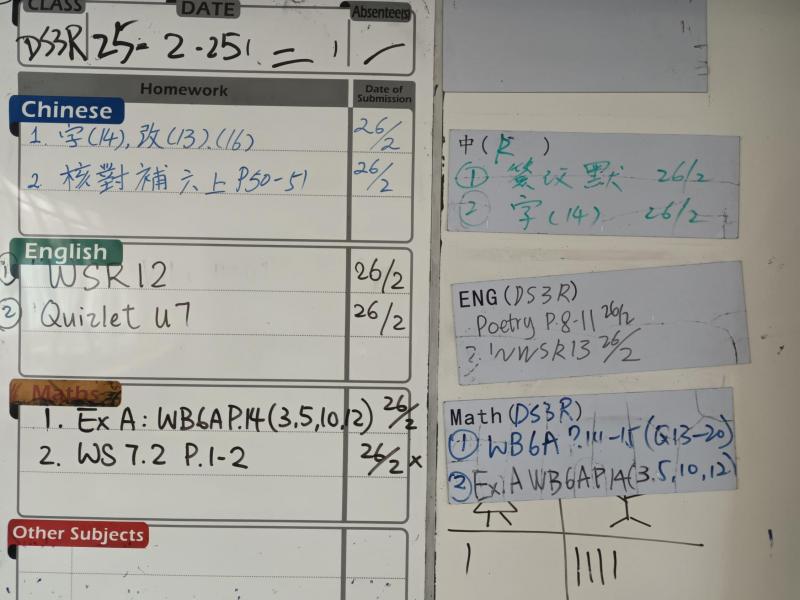 CLASS DATE Absentee(s)
DS3R 25-2-25 1
Homework Date of Submission
Chinese
1. 字(14), 改(13).(16) 26/2
2. 核對補六上 P50-51 26/2
English
① WSR12 26/2
② Quizlet U7 26/2
Maths
1. Ex A: WB6A P.14(3,5,10,12) 26/2
2. WS 7.2 P.1-2 26/2 x
Other Subjects
中( )
① 默 26/2
② 字(14) 26/2
ENG(DS3R)
Poetry P.8-11 26/2
2. WSR13 26/2
Math(DS3R)
① WB6A P.111-15(Q13-20)
② Ex: A WB6A P14(3.5,10,12)